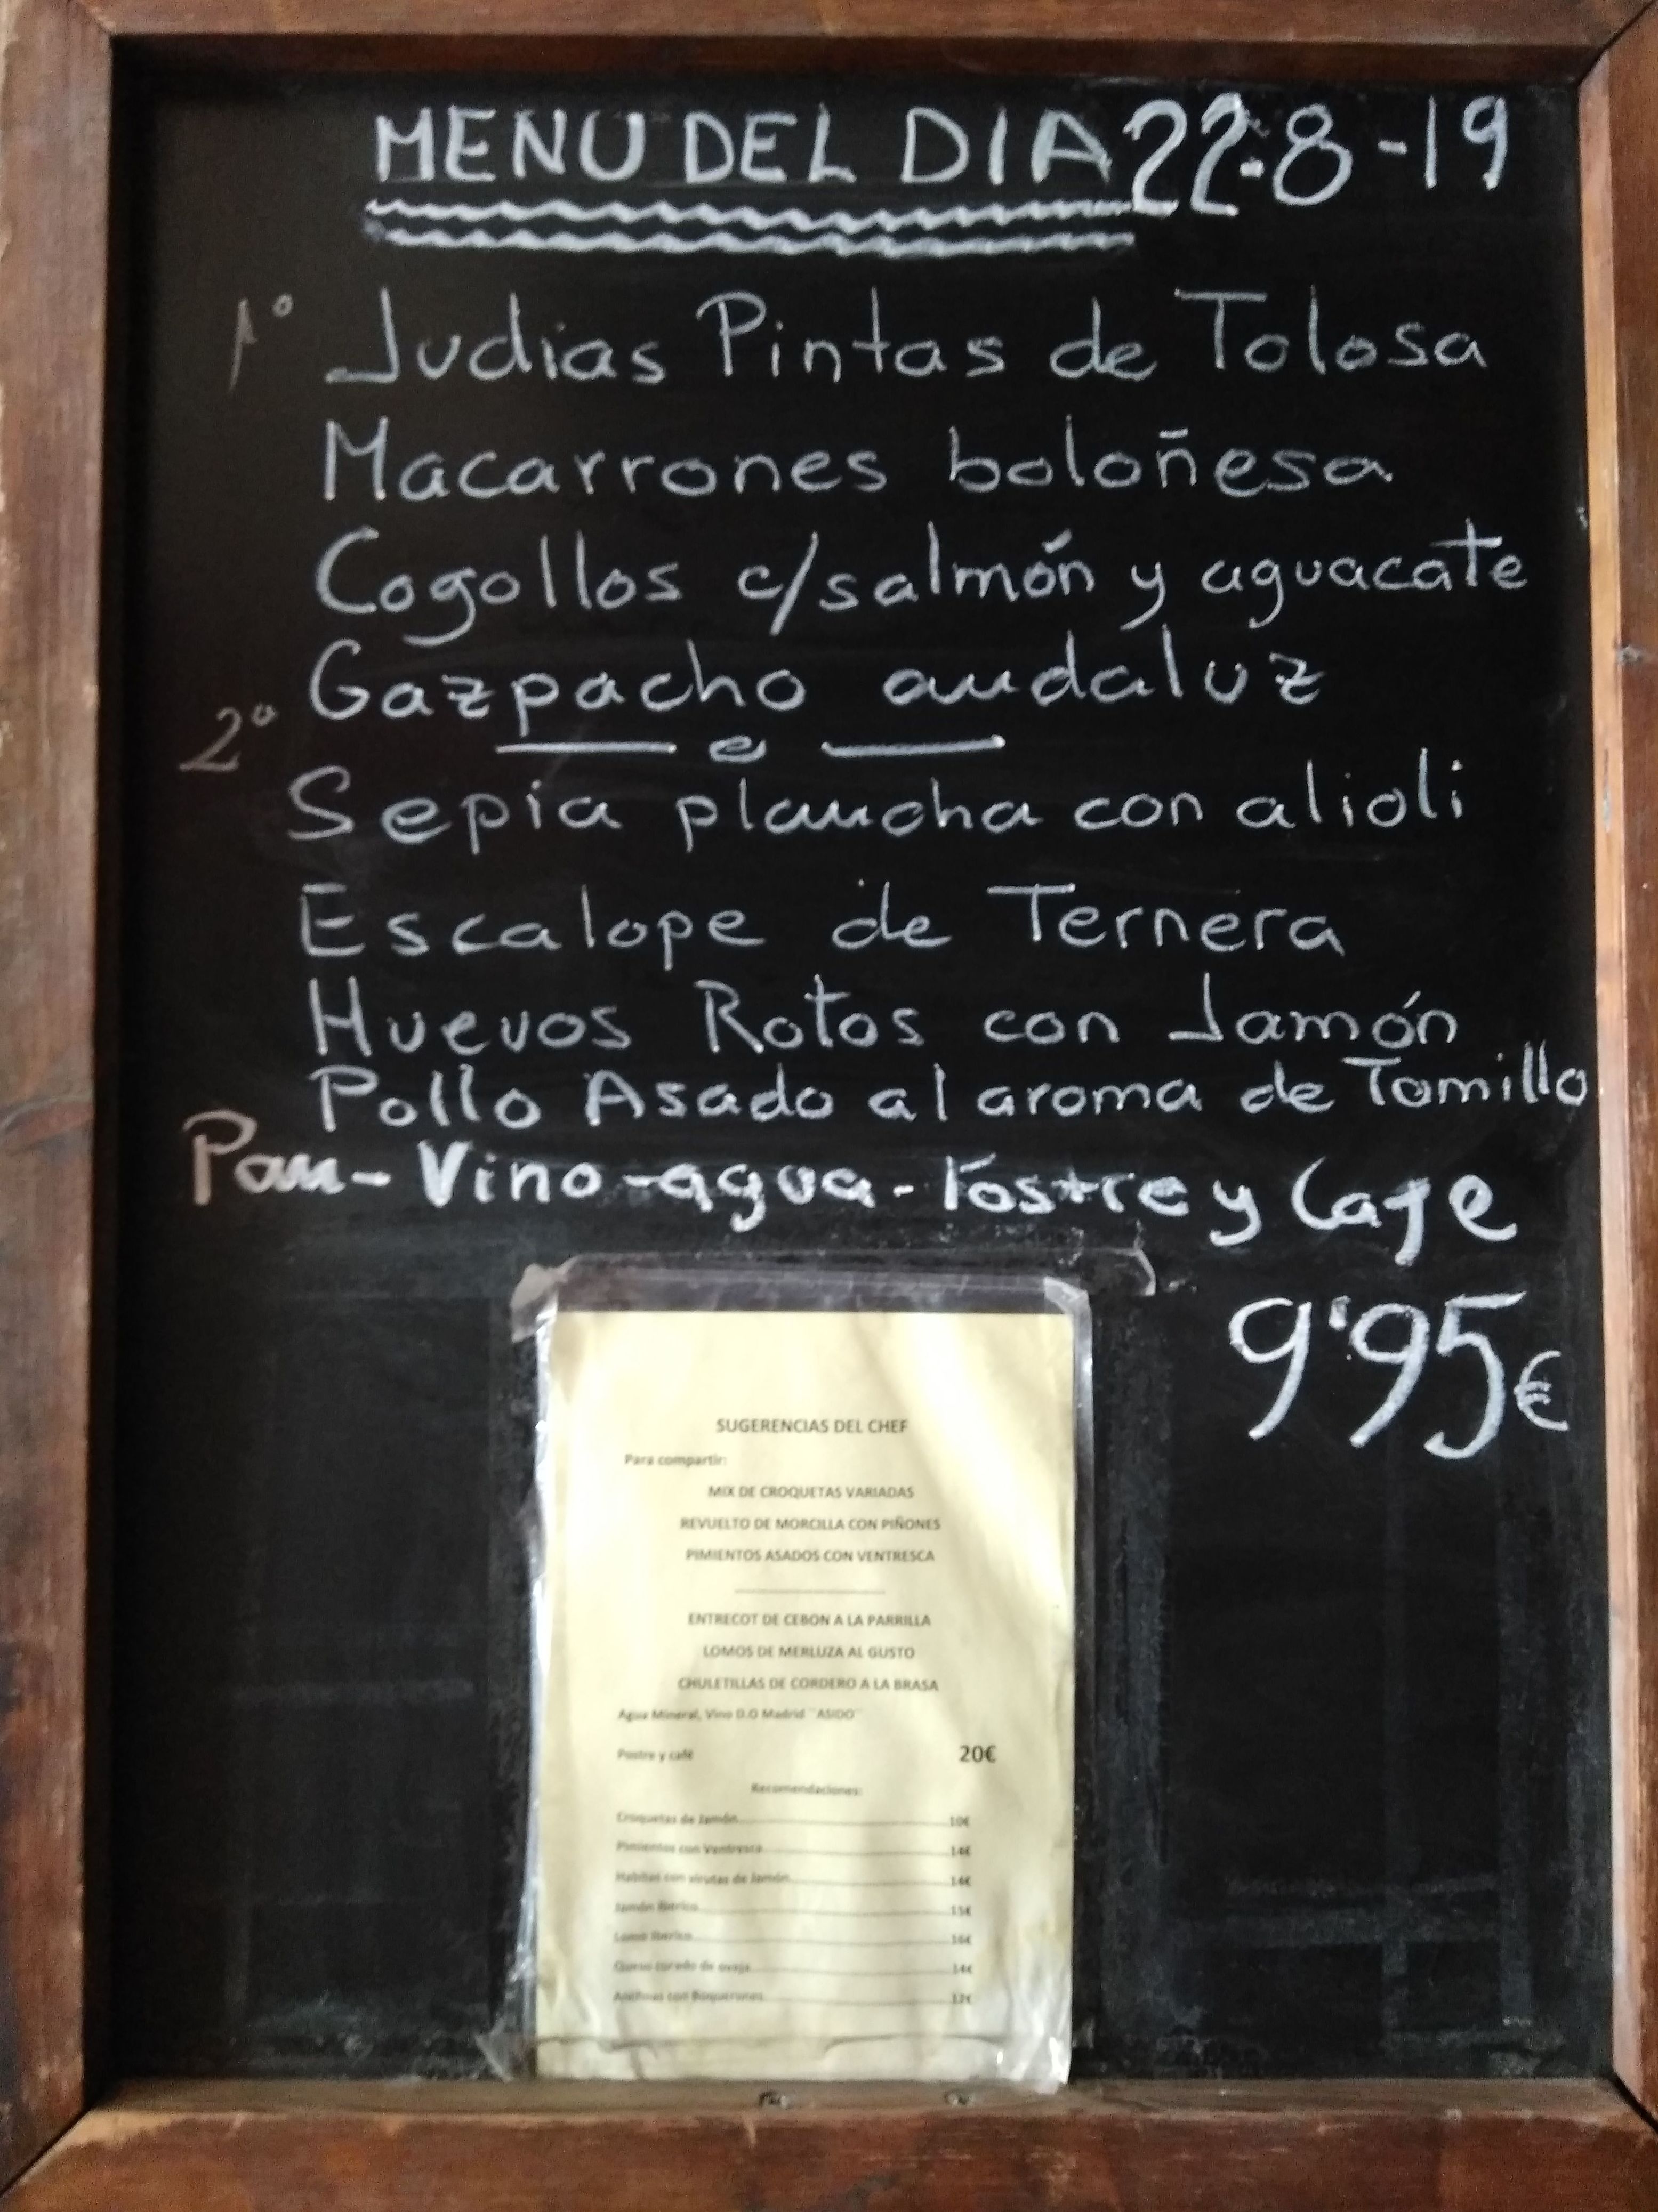 MENU DEL DIA 22-8-19
1º Judias Pintas de Tolosa
Macarrones boloñesa
Cogollos c/salmón y aguacate
Gazpacho andaluz
2º
Sepia plancha con alioli
Escalope de Ternera
Huevos Rotos con Jamón
Pollo Asado al aroma de Tomillo
Pan-Vino-agua-Postre y Cafe
9'95€
SUGERENCIAS DEL CHEF
Para compartir:
MIX DE CROQUETAS VARIADAS
REVUELTO DE MORCILLA CON PIÑONES
PIMIENTOS ASADOS CON VENTRESCA
ENTRECOT DE CEBON A LA PARRILLA
LOMOS DE MERLUZA AL GUSTO
CHULETILLAS DE CORDERO A LA BRASA
Agua Mineral, Vino D.O Madrid ¨ASIDO¨
Postre y café 20€
Recomendaciones:
Croquetas de Jamón 10€
Pimientos con Ventresca 14€
Habitas con virutas de Jamón 14€
Jamón Ibérico 15€
Lomo Ibérico 16€
Queso curado de oveja 14€
con Boquerones 12€